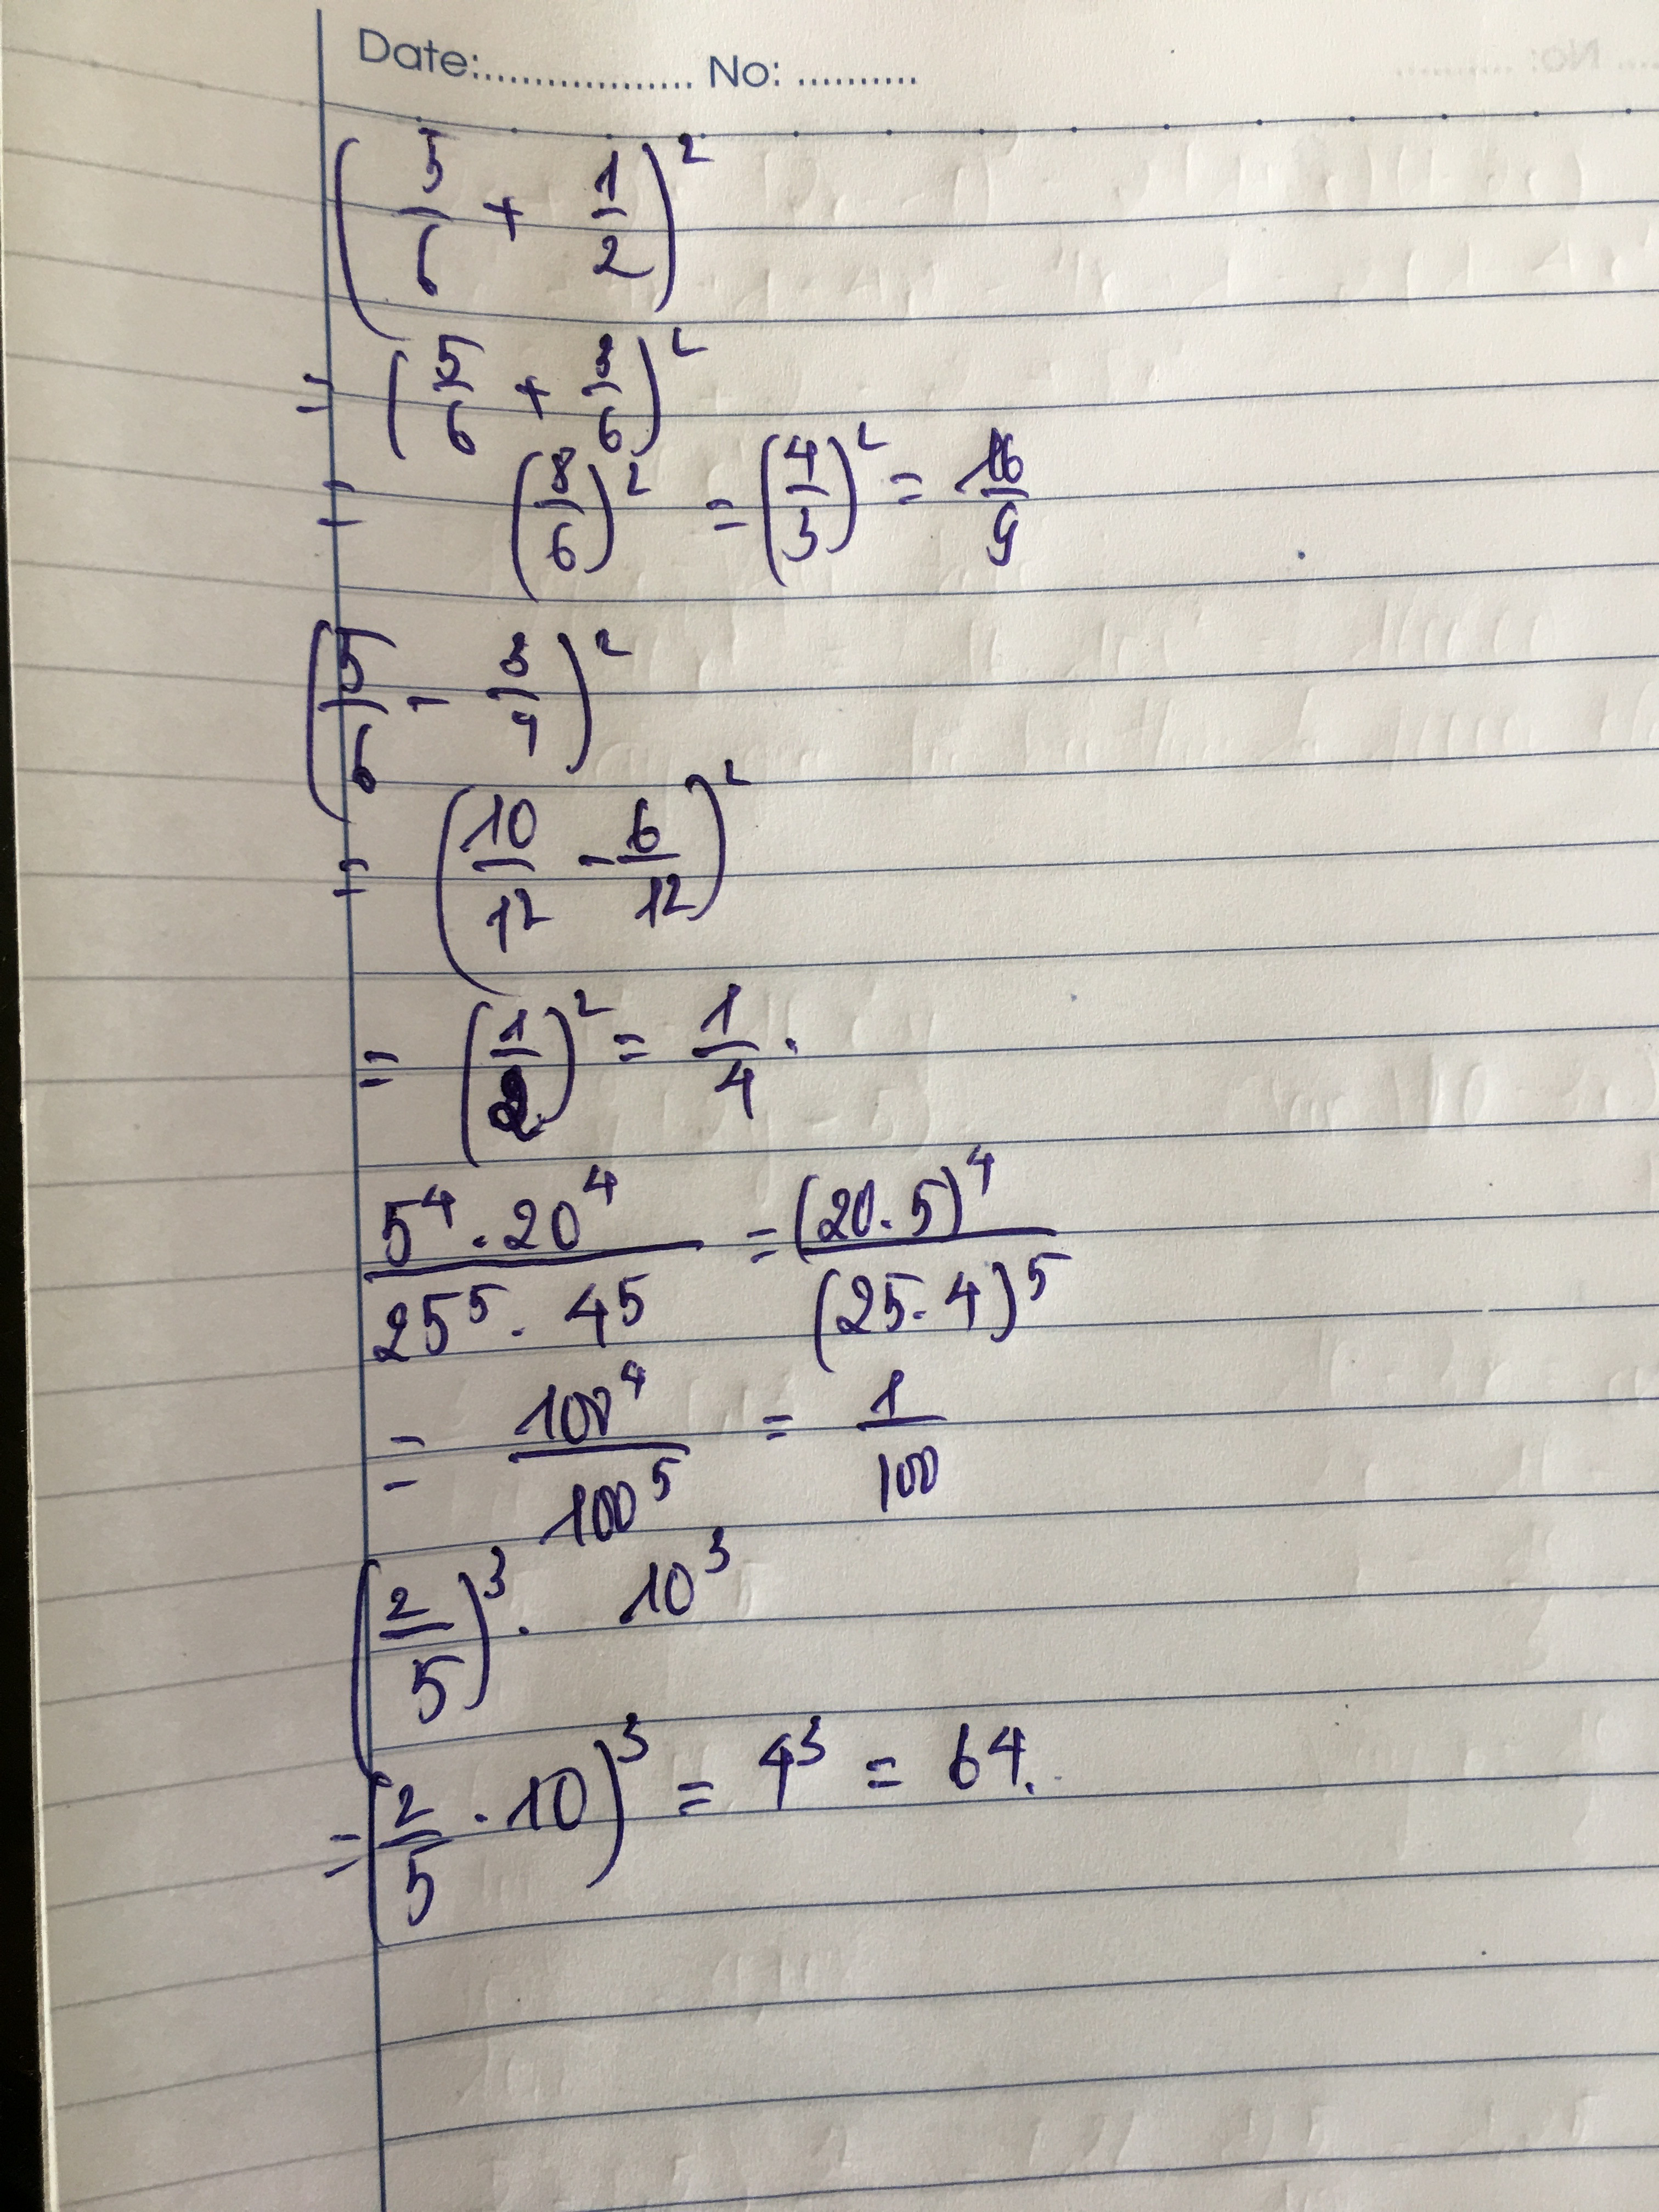 Date:.................. No: ..........
(5/6 + 1/2)²
= (5/6 + 3/6)²
= (8/6)² = (4/3)² = 16/9
(5/6 - 3/4)²
= (10/12 - 6/12)²
= (1/2)² = 1/4 .
5⁴ . 20⁴ / 25⁵ . 4⁵ = (20 . 5)⁴ / (25 . 4)⁵
= 100⁴ / 100⁵ = 1/100
(2/5)³ . 10³
= (2/5 . 10)³ = 4³ = 64.